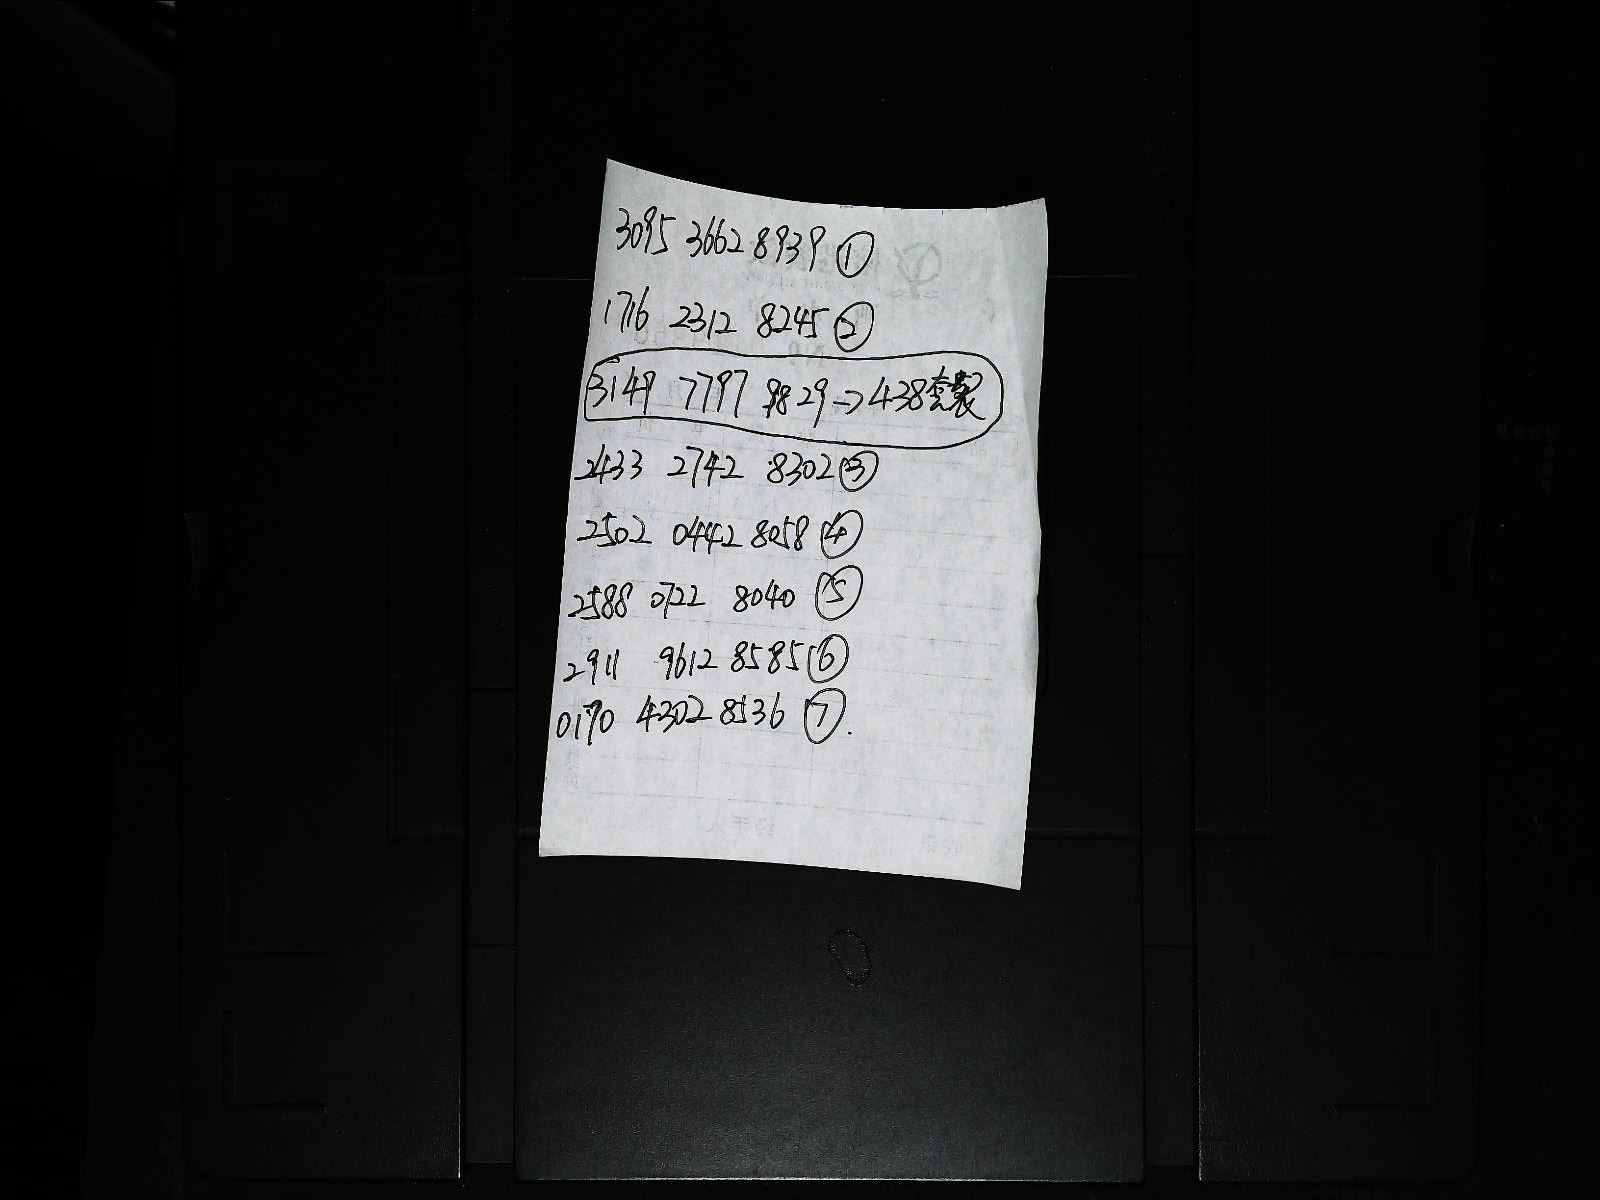 3095 3662 8939 ①
1716 2312 8245 ②
3149 7797 9829 → 438套装
2433 2742 8302 ③
2502 0442 8058 ④
2588 0722 8040 ⑤
2911 9612 8585 ⑥
0170 4302 8536 ⑦.